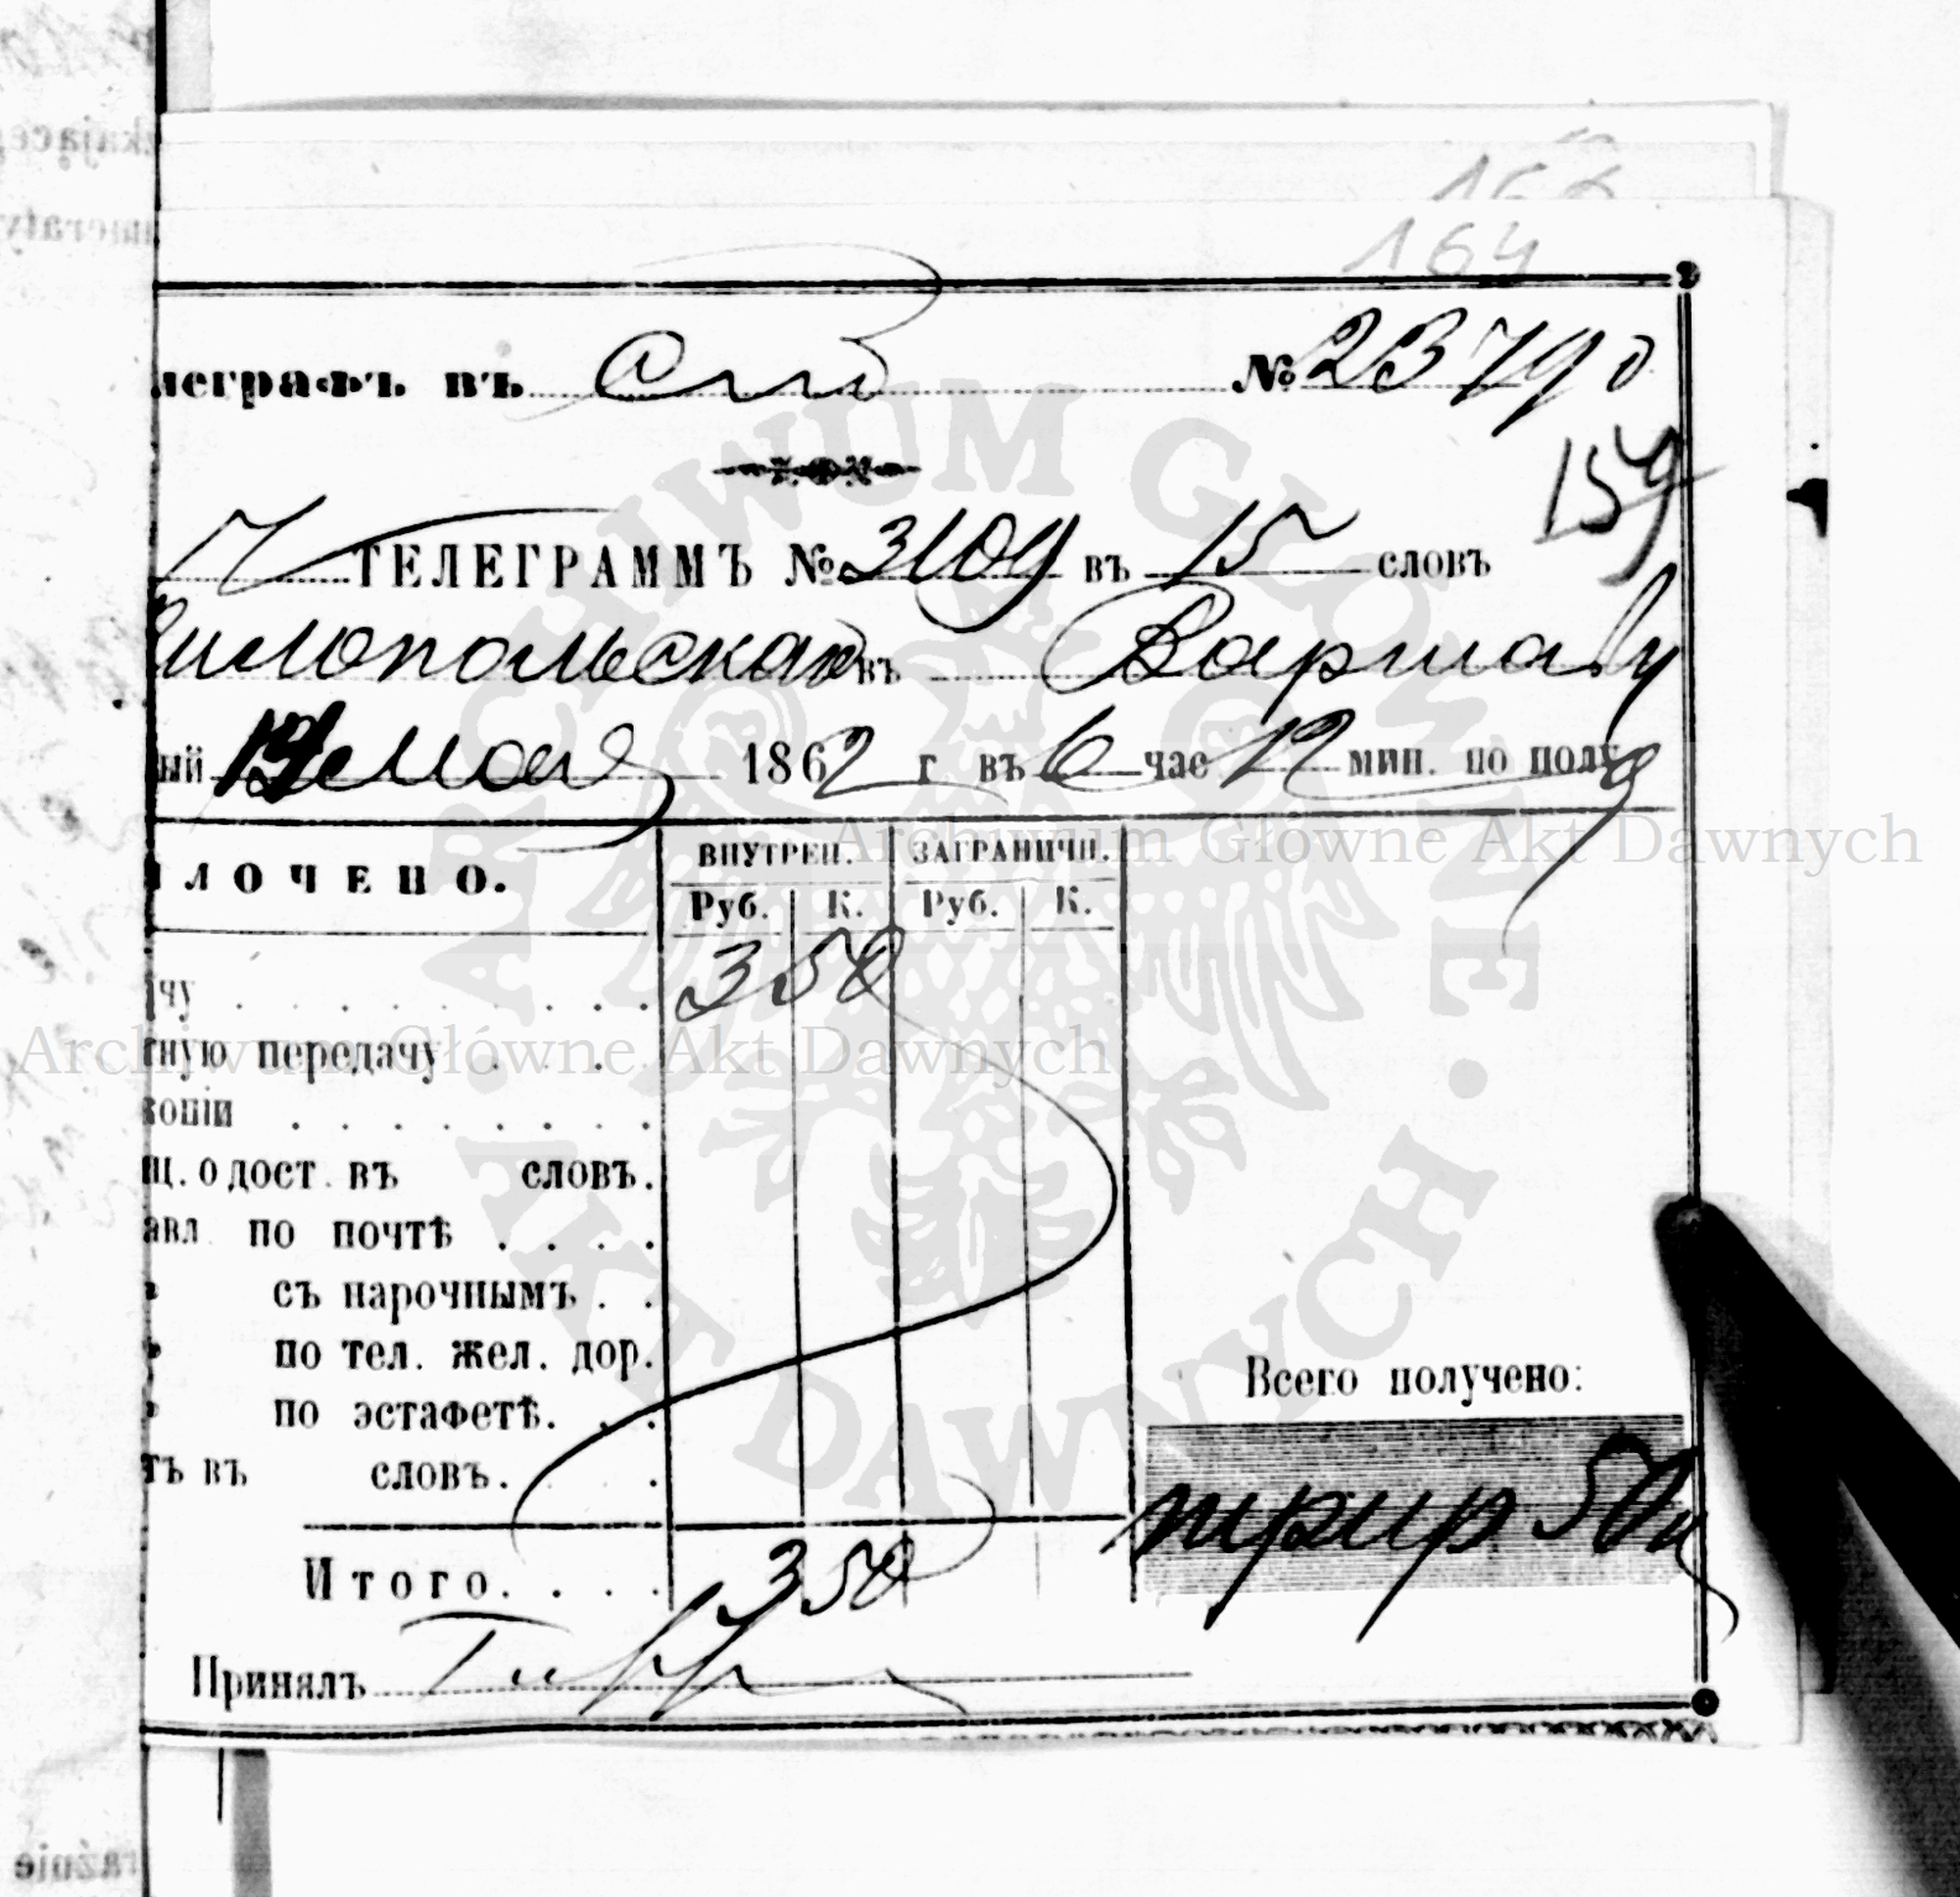 164
леграфъ въ Спб № 23790
159
ТЕЛЕГРАММЪ № 3109 въ 15 словъ
въ Варшаву
ый 19 Мая 1862 г въ 6 час 12 мин. по полу
ЛОЧЕНО. ВНУТРЕН. ЗАГРАНИЧН.
Руб. К. Руб. К.
чу . . . . . . . . . 3 50
ную передачу . . .
копіи . . . . . . .
щ. о дост. въ словъ.
авл по почтѣ . . . .
съ нарочнымъ . .
по тел. жел. дор.
по эстафетѣ. . .
ть въ словъ. .
Всего получено:
три р 50 к
Итого. . . . 3 50
Принялъ
Archiwum Główne Akt Dawnych
Archiwum Główne Akt Dawnych
ARCHIWUM GŁÓWNE AKT DAWNYCH